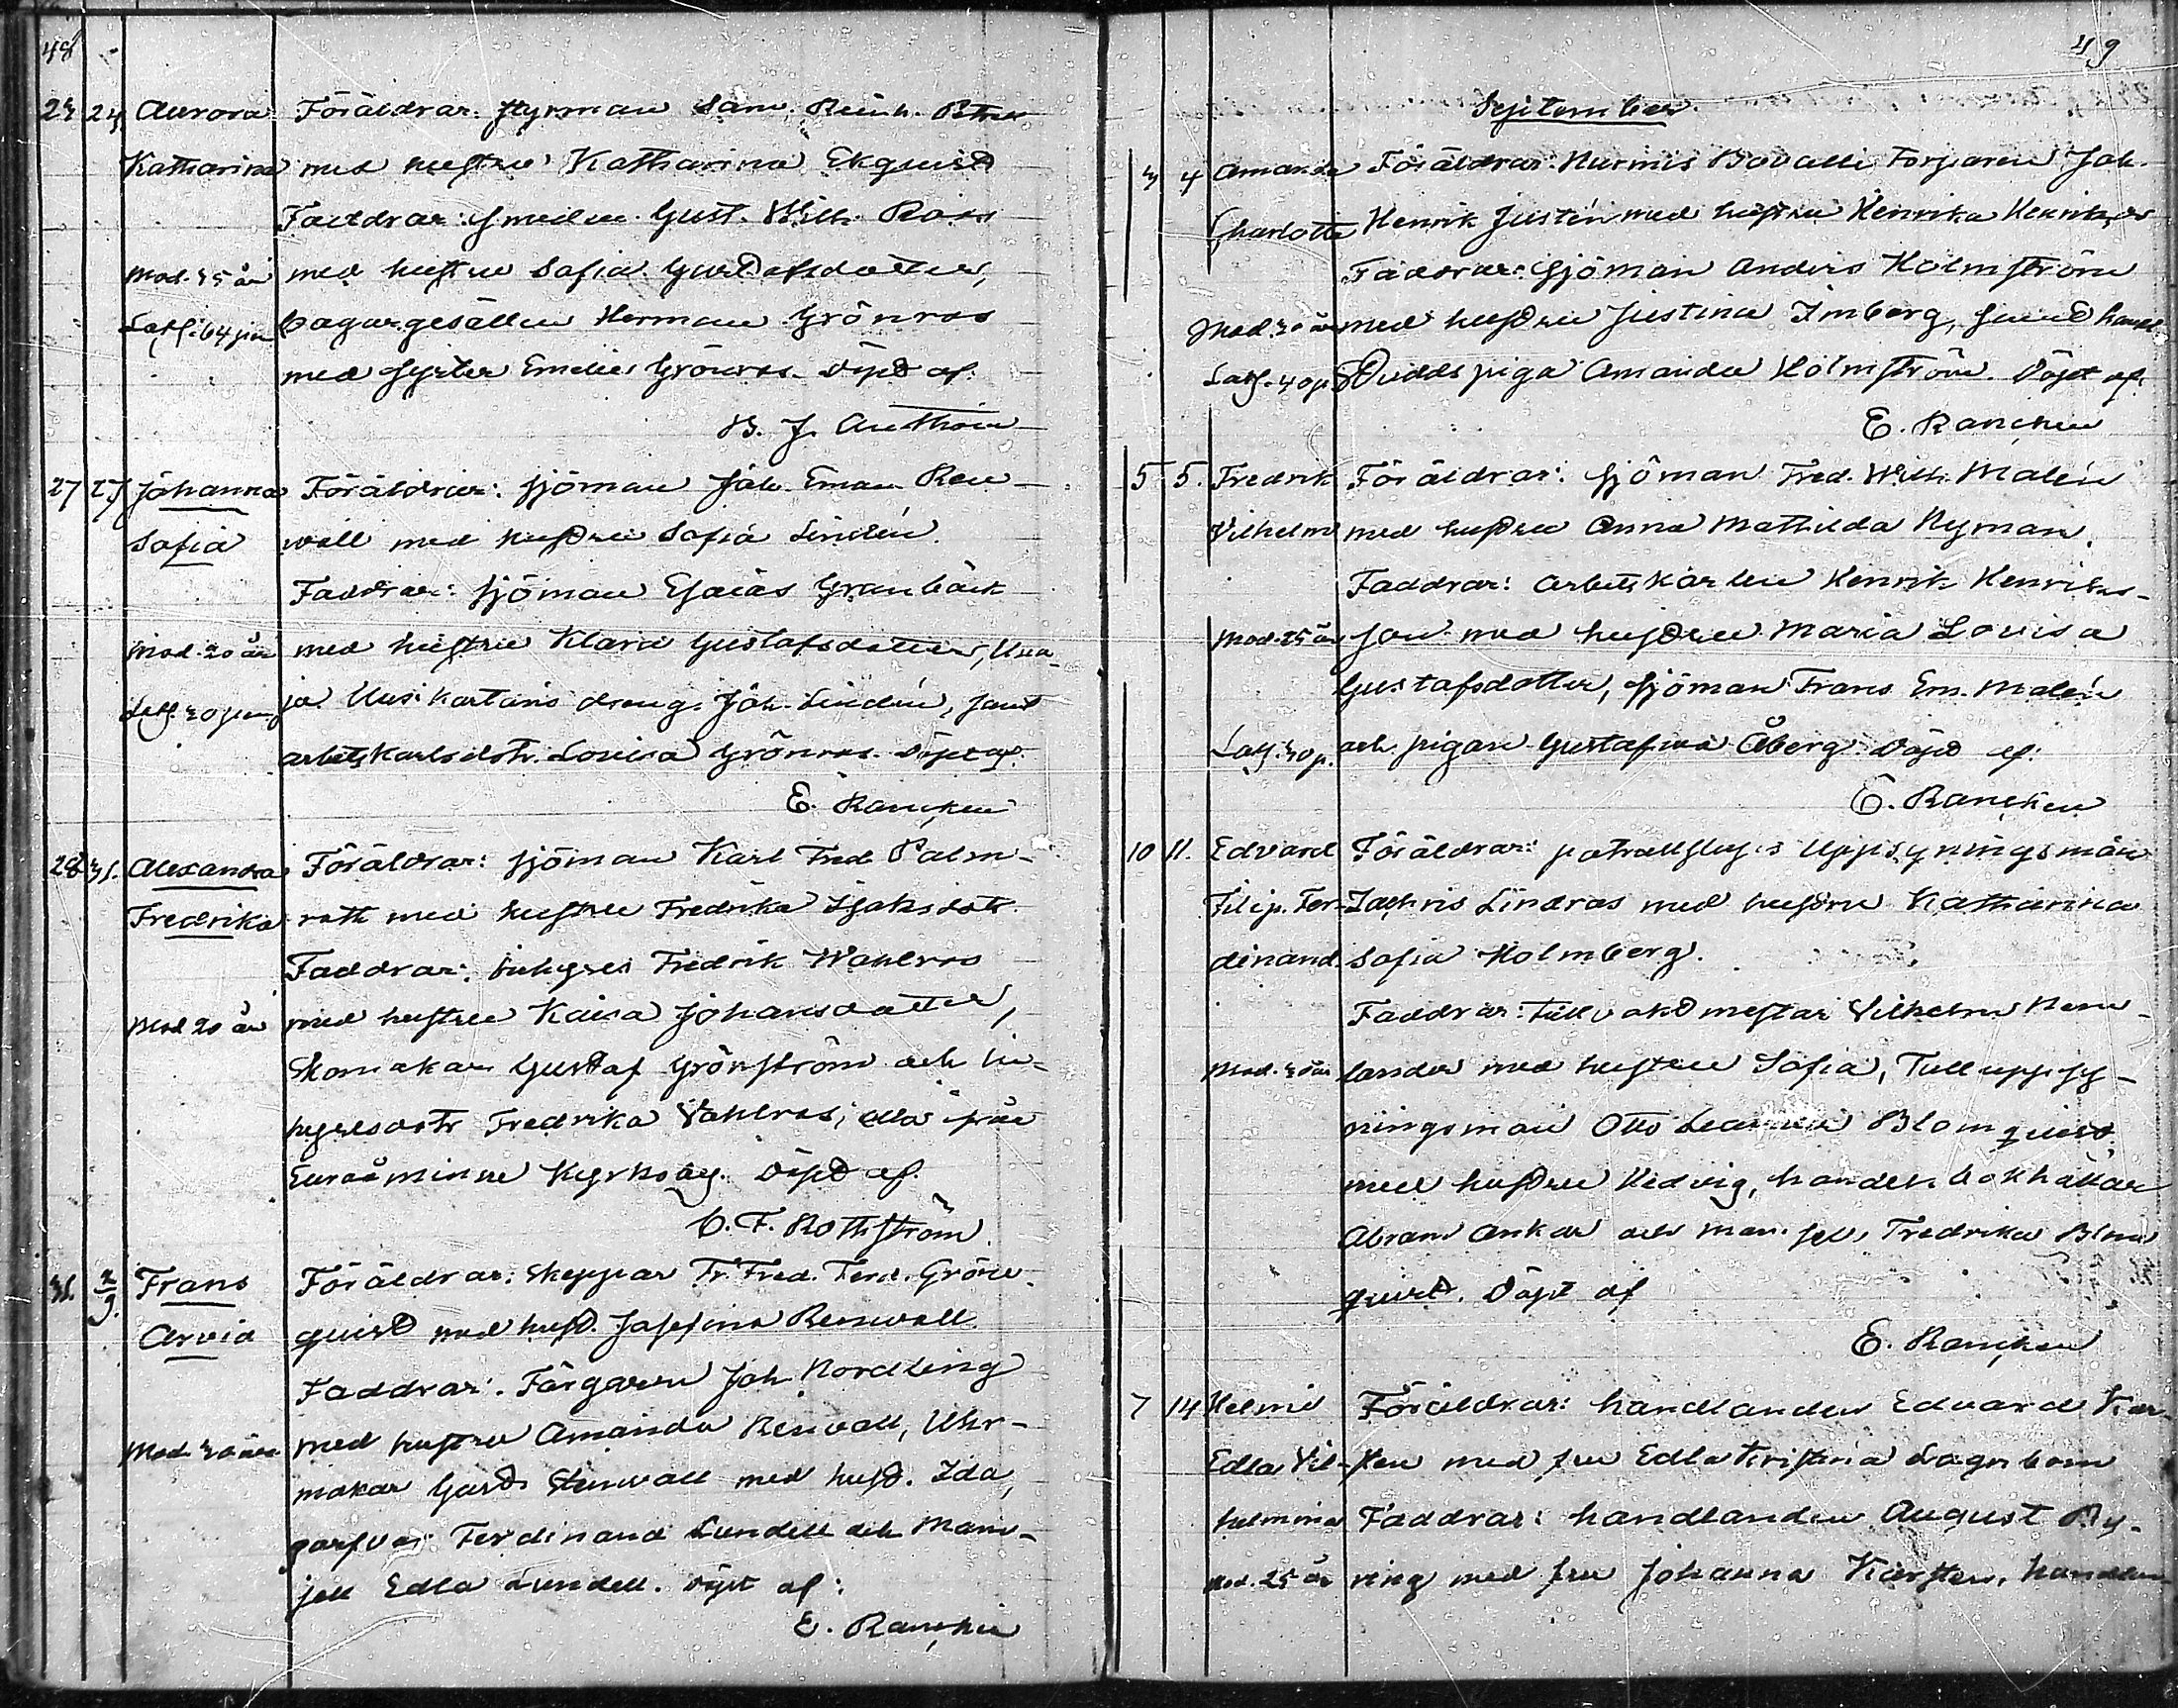 48
23 24 Aurora Föräldrar: styrman Sam. Reinh.
Katharina med hustru Katharina Ekquist
Faddrar: smeden Gust. Wilh. Roos
Mod. 35 år med hustru Sofia Gustafsdotter,
Lösf. 64 pen bagargesällen Herman Grönros
med syster Emelie Grönros. Döpt af.
B. J. Anthoin
27 27 Johanna Föräldrar: sjöman Joh. Eman. Ren-
Sofia wall med hustru Sofia Lindén.
Faddrar: sjöman Esaias Granbäck
Mod. 20 år med hustru Klara Gustafsdotter, Una-
ja Uusikartano dreng Joh. Lindén, samt
arbetskarlsdotr. Lovisa Grönros. Döpt af.
E. Rancken
28 31. Alexandra Föräldrar: sjöman Karl Fred. Palm-
Fredrika roth med hustru Fredrika Isaksdotr.
Faddrar: inhyses Fredrik Wahlros
Mod 20 år med hustru Kaisa Johansdotter,
Skomakar Gustaf Grönström och in-
hysesdotr Fredrika Vahlros, alla från
Euraåminne Kyrkoby. Döpt af.
C. F. Rothström.
31. 2/9. Frans Föräldrar: Skeppar Fr. Fred. Ferd. Grön-
Arvid quist med hust. Josefina Renwall
Faddrar: Färgaren Joh. Nordling
Mod. 30 år med hustru Amanda Renvall, Uhr-
makar Gust. Stenvall med hust. Ida,
garfvar Ferdinand Lundell och Mam-
sell Edla Lundell. Döpt af:
E. Rancken
49
September.
3 4 Amanda Föräldrar: Nurmis Bovalli Torparen Joh.
Charlotta Henrik Justén med hustru Henrika Henriksdr
Faddrar: Sjöman Anders Holmström
Mod. 20 år med hustru Justina Imberg, samt
piga Amanda Holmström. Döpt af.
E. Rancken
5 5. Fredrik Föräldrar: sjöman Fred. Wilh. Malén
Vilhelm med hustru Anna Mathilda Nyman.
Faddrar: arbetskarlen Henrik Henriks-
Mod. 25 år son med hustru Maria Lovisa
Gustafsdotter, sjöman Frans Em. Malén
och pigan Gustafva Åberg. Döpt af.
E. Rancken
10 11. Edvard Föräldrar: uppsyningsman
Filip Fer- Zachris Lindros med hustru Katharina
dinand. Sofia Holmberg.
Faddrar: Tullvaktmästar Vilhelm Hem-
Mod. 30 år lander med hustru Sofia, Tulluppsy-
ningsman Otto Blomquist
med hustru Hedvig, handels bokhållar
Abram Ankar och mamsell Fredrika Blom-
quist. Döpt af
E. Rancken
7 14 Helmi Föräldrar: handlanden Edvard Kar-
Edla Vil- sten med fru Edla Kristina Lagerbom
helmina Faddrar: handlanden August Ry-
Mod. 25 år ring med fru Johanna Karsten, handlan